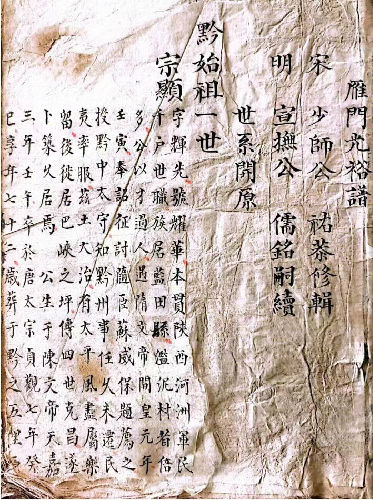 雁門光裕譜
宋 少師公 祐恭修輯
明 宣撫公 儒銘嗣續
世系開原
黔始祖一世
宗顯 字輝先號耀華本貫陝西河洲軍民
千戶世職族居藍田縣爛泥村者倍
多公以才過人遇隋文帝開皇元年
壬寅奉詔征討臣蘇威保題薦之
授黔中太守知黔州事任久未還民
夷率服茲土大治有太平風盡屬樂
留後徙居巴峽之坪傳四世克昌遂
卜築久居焉 公生于陳文帝天嘉
三年壬午卒於唐太宗貞觀七年癸
巳享年七十二歲葬于黔之五里